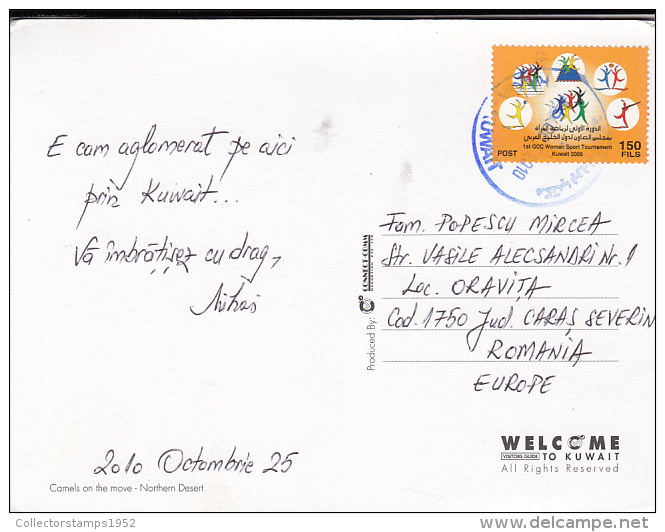 الدورة الأولى لرياضة المرأة
بمجلس التعاون لدول الخليج العربي
1st GCC Women Sport Tournament
POST Kuwait 2008 150
FILS
KUWAIT
E cam aglomerat pe aici
prin Kuwait...
Vă îmbrățișez cu drag,
Mihai
2010 Octombrie 25
Camels on the move - Northern Desert
Produced By: CONNECT-COMM
Fam. POPESCU MIRCEA
Str. VASILE ALECSANDRI Nr. 1
Loc. ORAVIȚA
Cod. 1750 Jud. CARAȘ SEVERIN
ROMANIA
EUROPE
WELCOME
VISITORS GUIDE TO KUWAIT
All Rights Reserved
Collectorstamps1952
delcampe.net